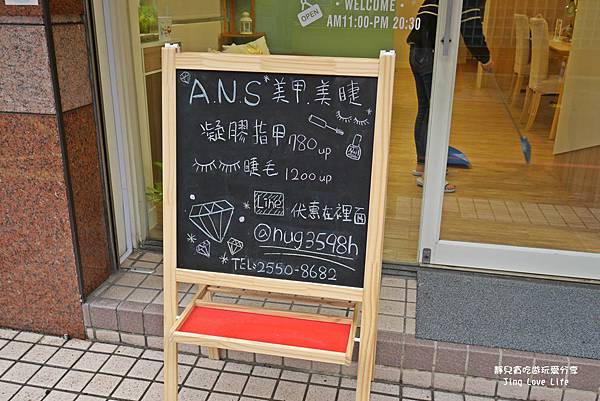 OPEN
• WELCOME •
AM11:00-PM 20:30
A.N.S*美甲.美睫
凝膠指甲780up
睫毛1200up
Like
伏惠在裡面
@nug3598h
TEL:2550-8682
靜兒貪吃遊玩愛分享
Jing Love Life